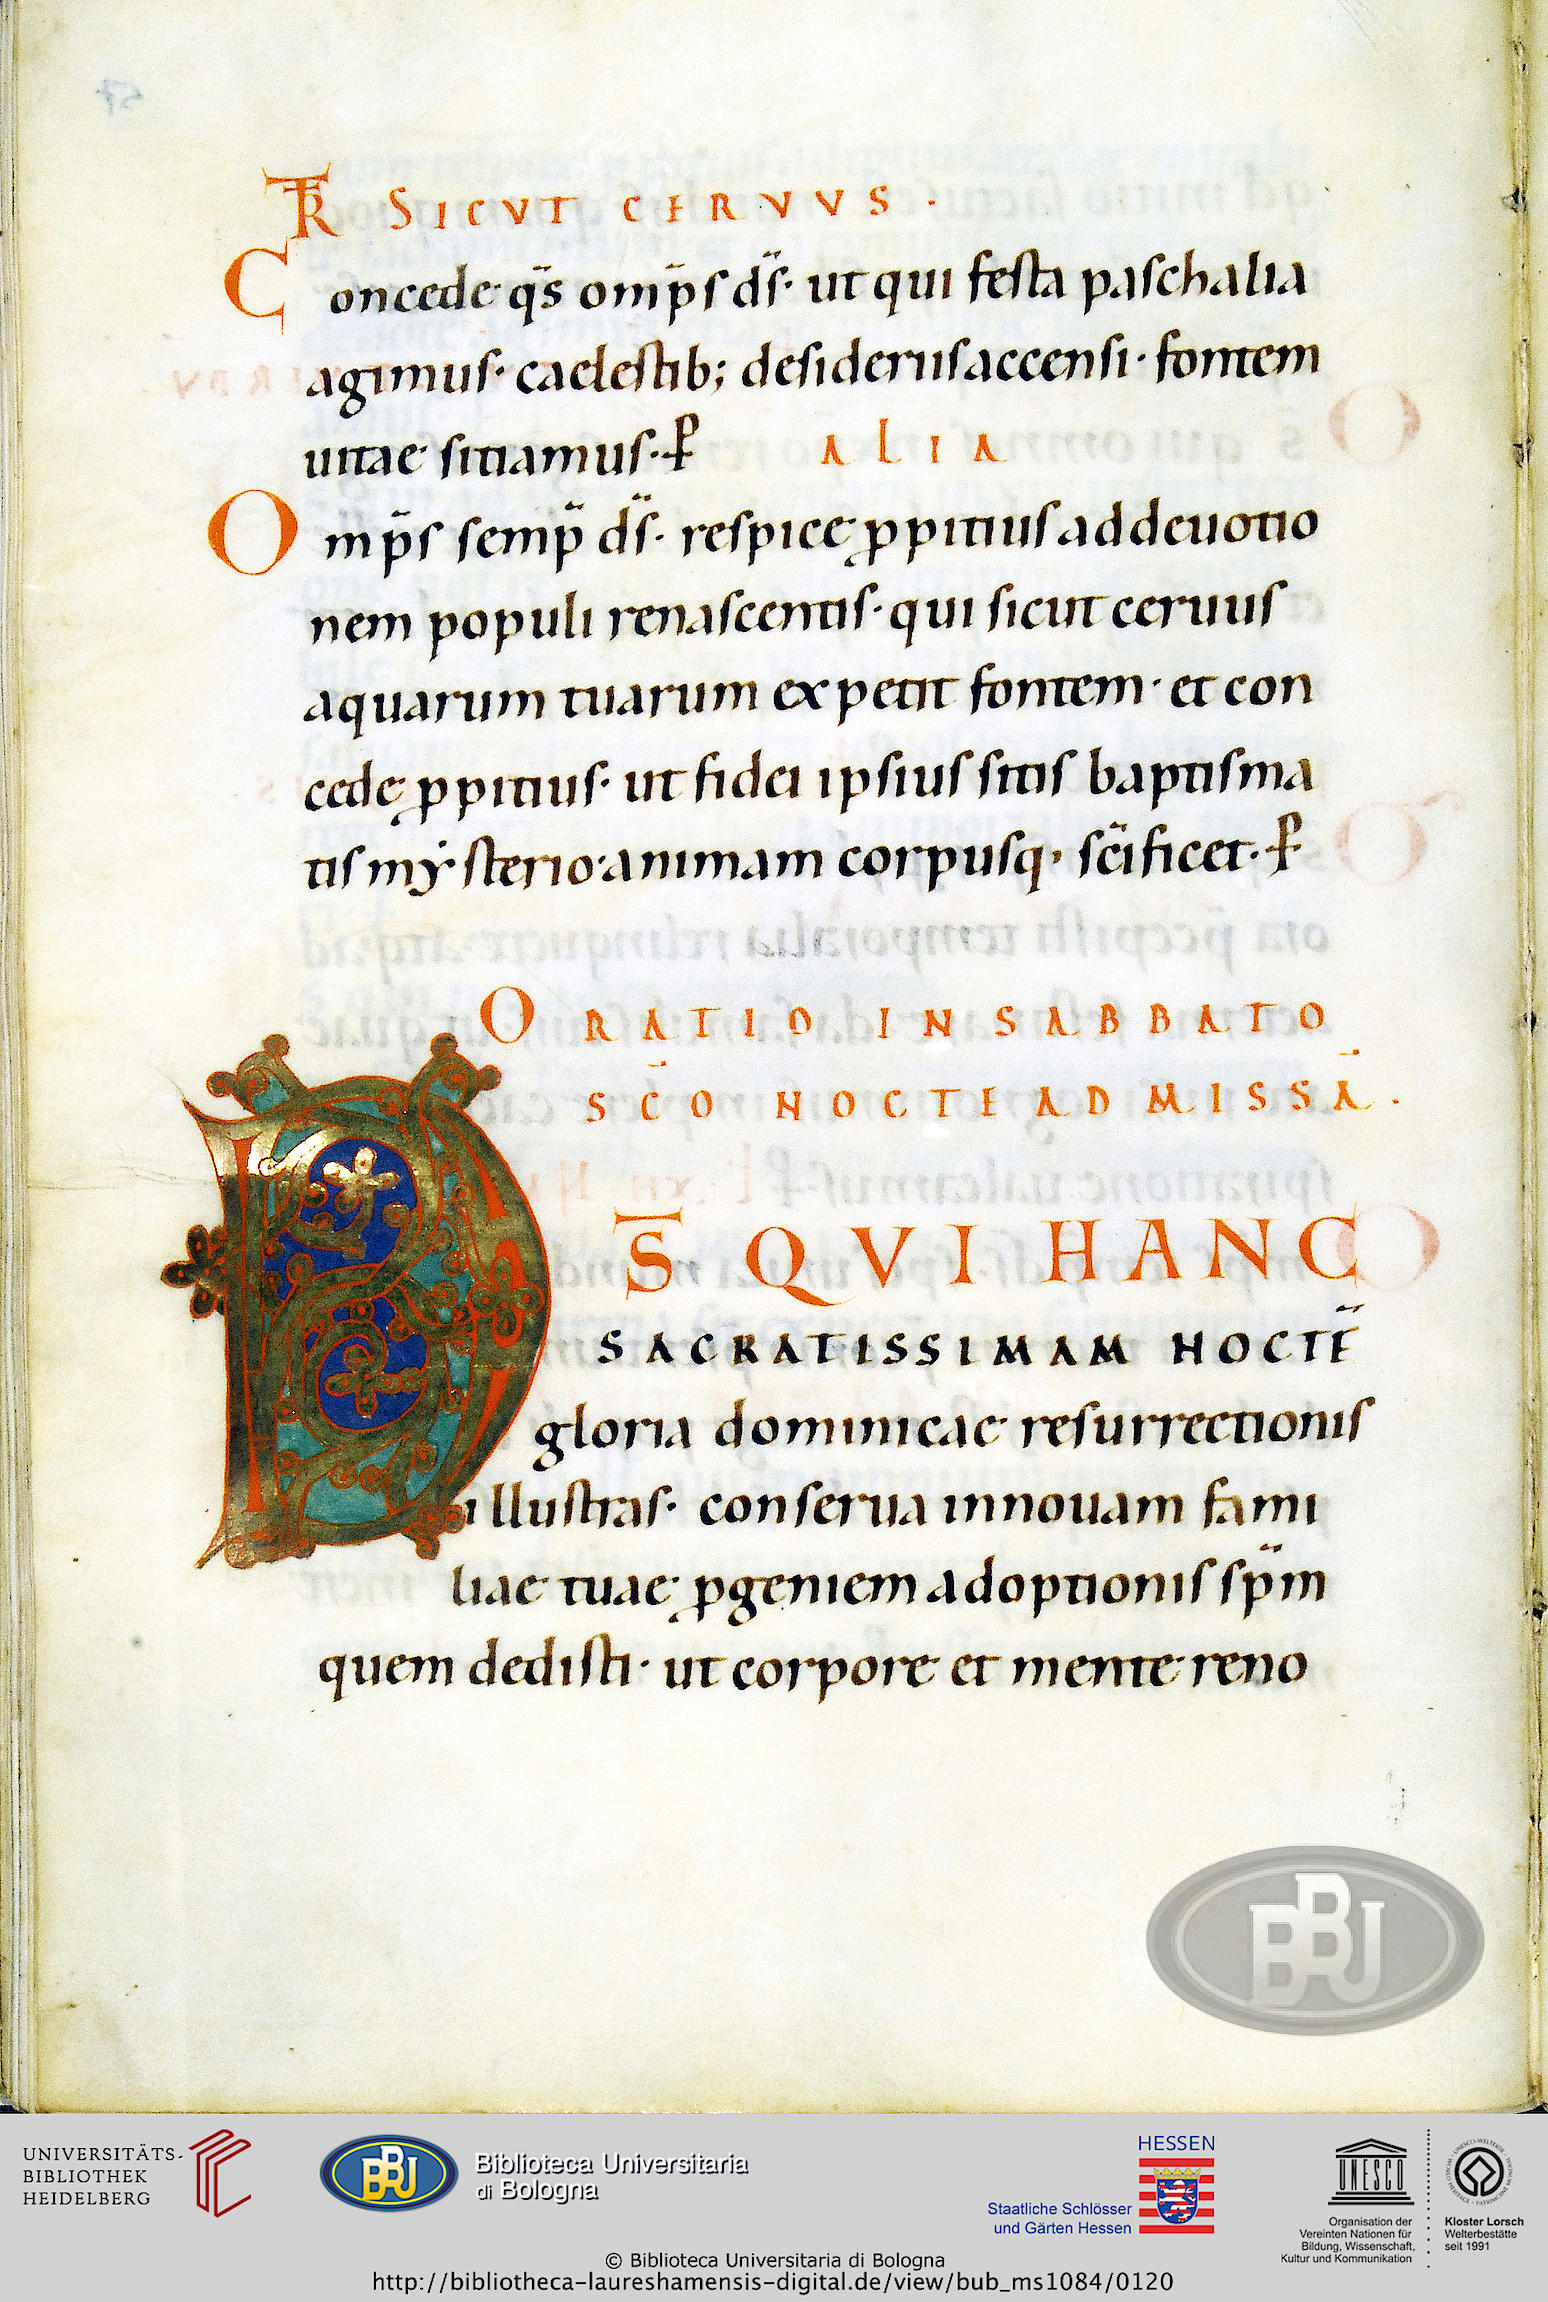 TR SICVT CERVVS ·
Concede q̅s omp̅s d̅s· ut qui festa paschalia
agimus· caelestib; desideriis accensi· fontem
uitae sitiamus· P
ALIA
Omp̅s semp̅ d̅s· respice ꝓpitius ad deuotio
nem populi renascentis· qui sicut ceruus
aquarum tuarum expetit fontem· et con
cede ꝓpitius· ut fidei ipsius sitis baptisma
tis mẏsterio· animam corpusq· sc̅ificet· P
ORATIO IN SABBATO
SC̅O NOCTE AD MISSĀ.
DS̅ QVI HANC
SACRATISSIMAM NOCTE̅
gloria dominicae resurrectionis
illustras· conserua in nouam fami
liae tuae ꝓgeniem adoptionis sp̅m
quem dedisti· ut corpore et mente reno
BBU
UNIVERSITÄTS-
BIBLIOTHEK
HEIDELBERG
BBU
Biblioteca Universitaria
di Bologna
HESSEN
Staatliche Schlösser
und Gärten Hessen
UNESCO
Organisation der
Vereinten Nationen für
Bildung, Wissenschaft,
Kultur und Kommunikation
Kloster Lorsch
Welterbestätte
seit 1991
© Biblioteca Universitaria di Bologna
http://bibliotheca-laureshamensis-digital.de/view/bub_ms1084/0120